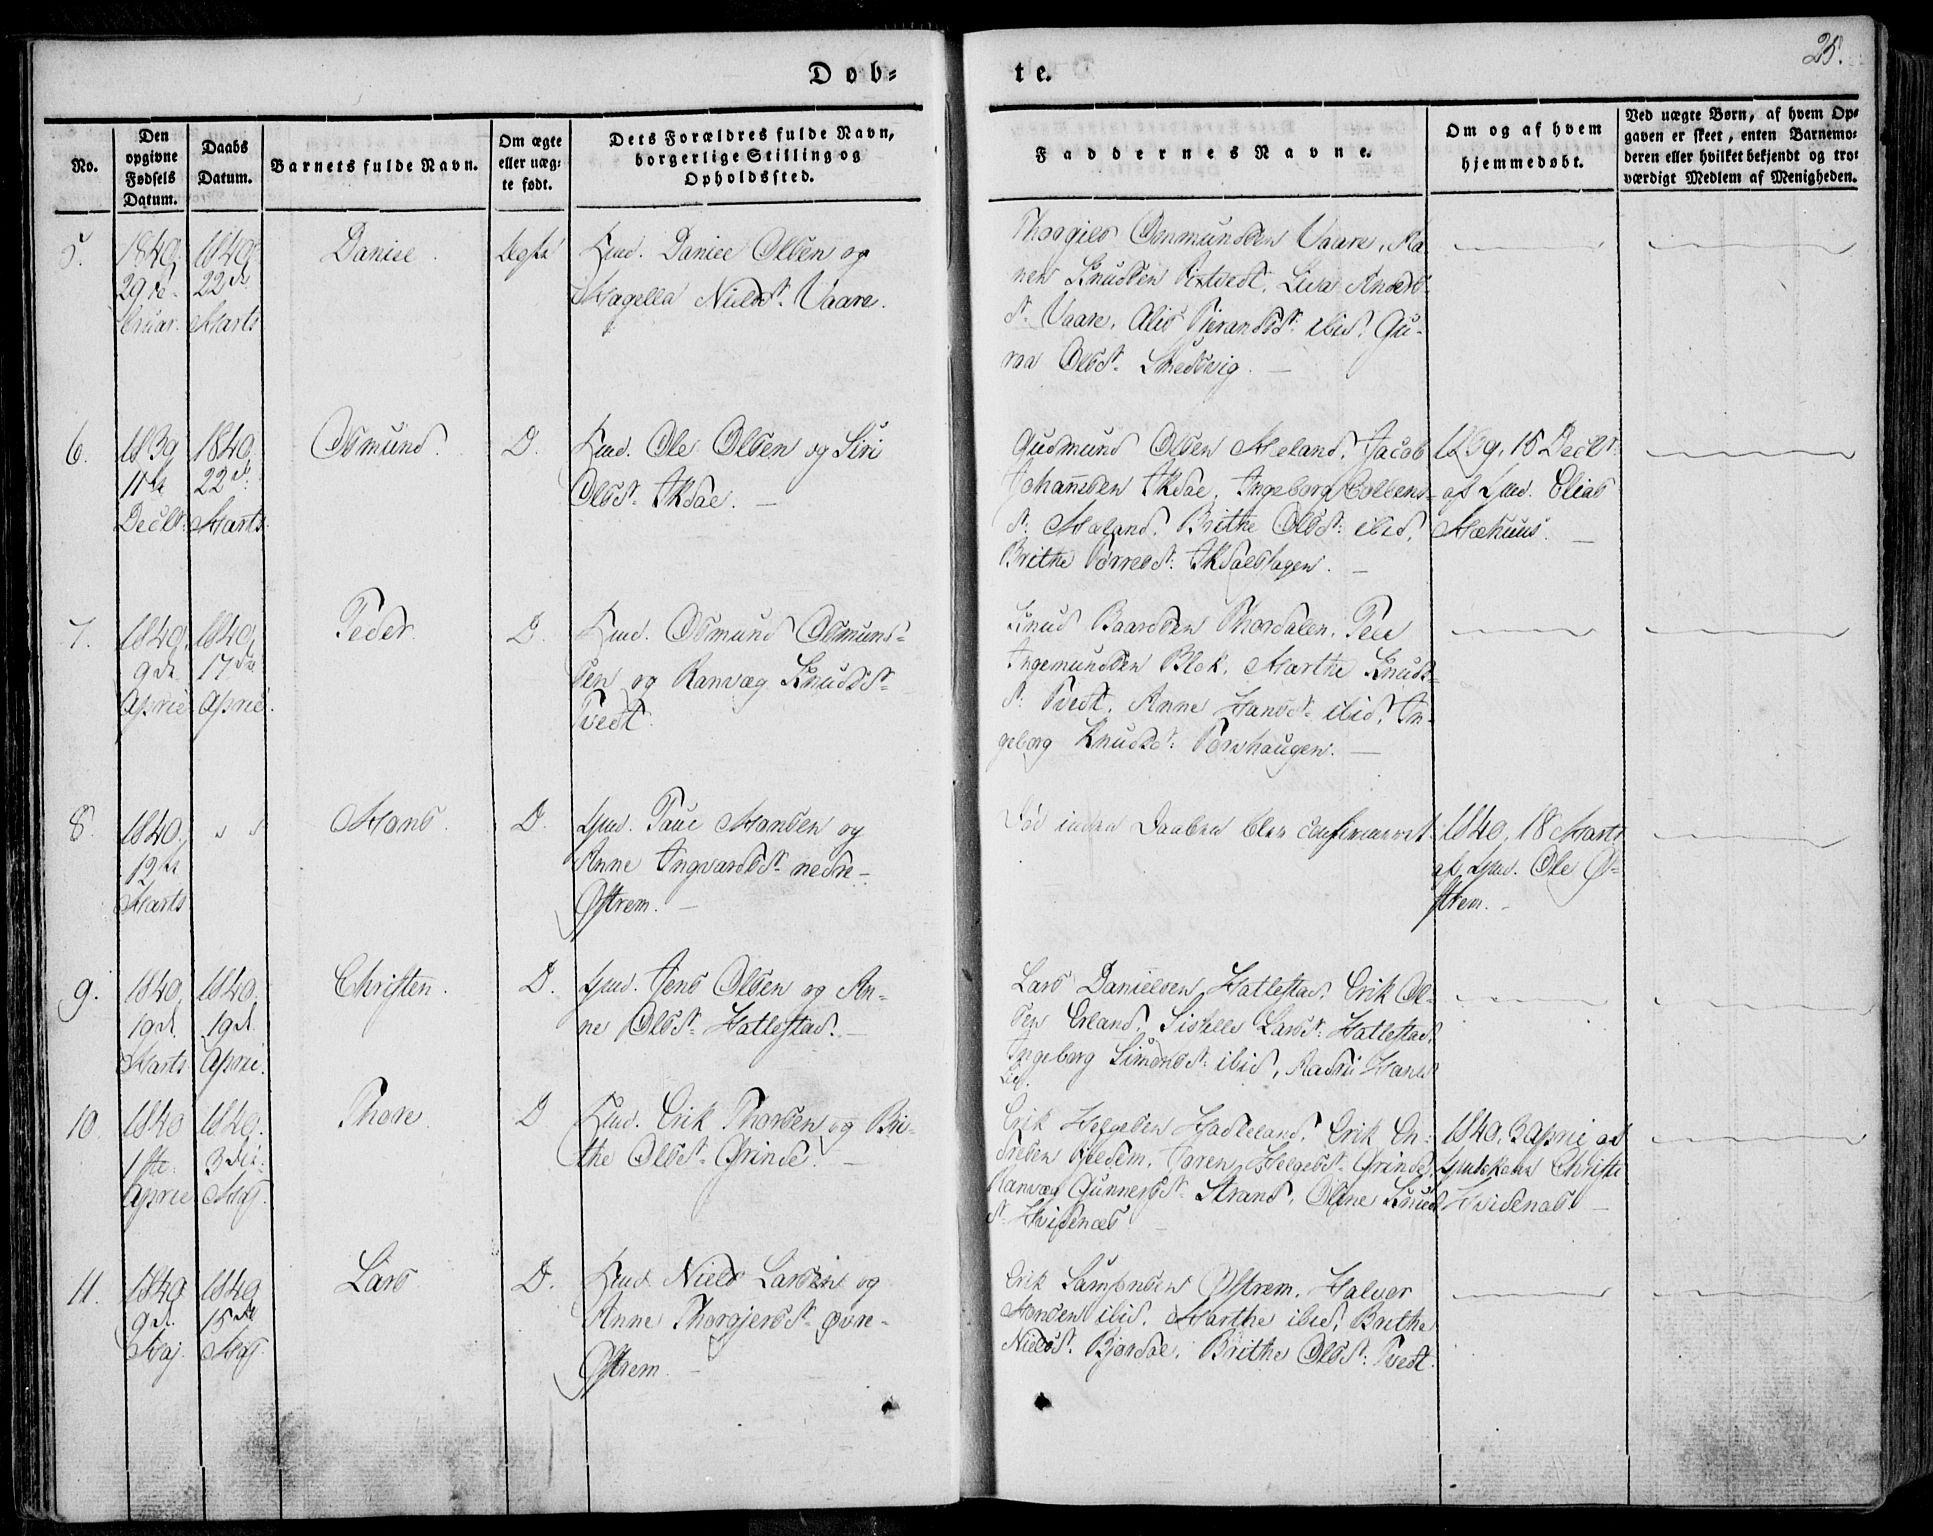 25.
Døb=
te.
No.
Den
opgivne
Fødsels
Datum.
Daabs
Datum.
Barnets fulde Navn.
Om ægte
eller uæg=
te født.
Dets Forældres fulde Navn,
borgerlige Stilling og
Opholdssted.
Faddernes Navne.
Om og af hvem
hjemmedøbt.
Ved uægte Børn, af hvem Op=
gaven er skeet, enten Barnemo=
deren eller hvilket bekjendt og tro=
værdigt Medlem af Menigheden.
5.
1840.
29 Fe-
bruar.
1840.
22 d
Marts
Daniel.
Ægte
Gmd. Daniel Olsen og
Magella Nielsd. Vaare.
Osmundsen Vaare,
Knudsen Lisa Anders
d. Vaare, ibid. Gu-
ra Olsd. Smedsvig.
6.
1839
11te
Decbr.
1840.
22 d.
Marts.
Osmund.
D.
Gmd. Ole Olsen og Siri
Olsd. Aksdal.
Gudmund Olsen Meland, Jacob
Johannesen Aksdal, Ingeborg
d. Meland, Brithe Olsd: ibid,
Brithe Tørresd: Aksdalshagen.
1839, 15 Decbr:
af Gmd. Elias
7.
1840,
9 de
April
1840,
17 de
April.
Peder.
D.
Gmd. Osmund Osmund-
sen og Ranvæg Knudsd.
Tvedt.
Knud Baardsen
Ingemundsen Blok, Marthe Knuds-
d. Tvedt, Anne Hansd. ibid, In-
geborg Knudsd: Torshaugen.
8.
1840.
12te
Marts
" "
Hans.
D.
Hmd. Poul Hansen og
Anne Ingvardsd. nedre-
Østrem.
Død inden Daaben blev confirmeret
1840, 18 Marts
af Gmd. Ole Ø-
strem.
9.
1840.
10 d.
Marts
1840,
19 d.
April.
Christen.
D.
Hmd. Jens Olsen og An-
ne Olsd. Hatlestad.
Lars Danielsen Hatlestad, Erik Ol-
sen Erland, Larsd: Hatlestad,
Ingeborg Simonsd: ibid,
10
1840
1ste
April
1840.
3 die
Maj.
Thore
D
Gmd. Erik Thorsen og Bri-
the Olsd. Grinde.
Erik Helgesen Erik En-
dresen Helgesd. Grinde,
Ranvæg Gunnersd. Strand, Knuds
d. Hvidenæs
1840, 3 April af
Christe
Hvidenæs
11.
1840
9 d.
Maj
1840
15 de
Maj
Lars
D.
Gmd. Niels Larsen og
Anne Thorgjersd. øvre-
Østrem.
Erik Samsonsen Østrem, Halvor
Hansen ibid. Marthe ibid, Brithe
Nielsd. Bjordal, Brithe Olsd: Tvedt.